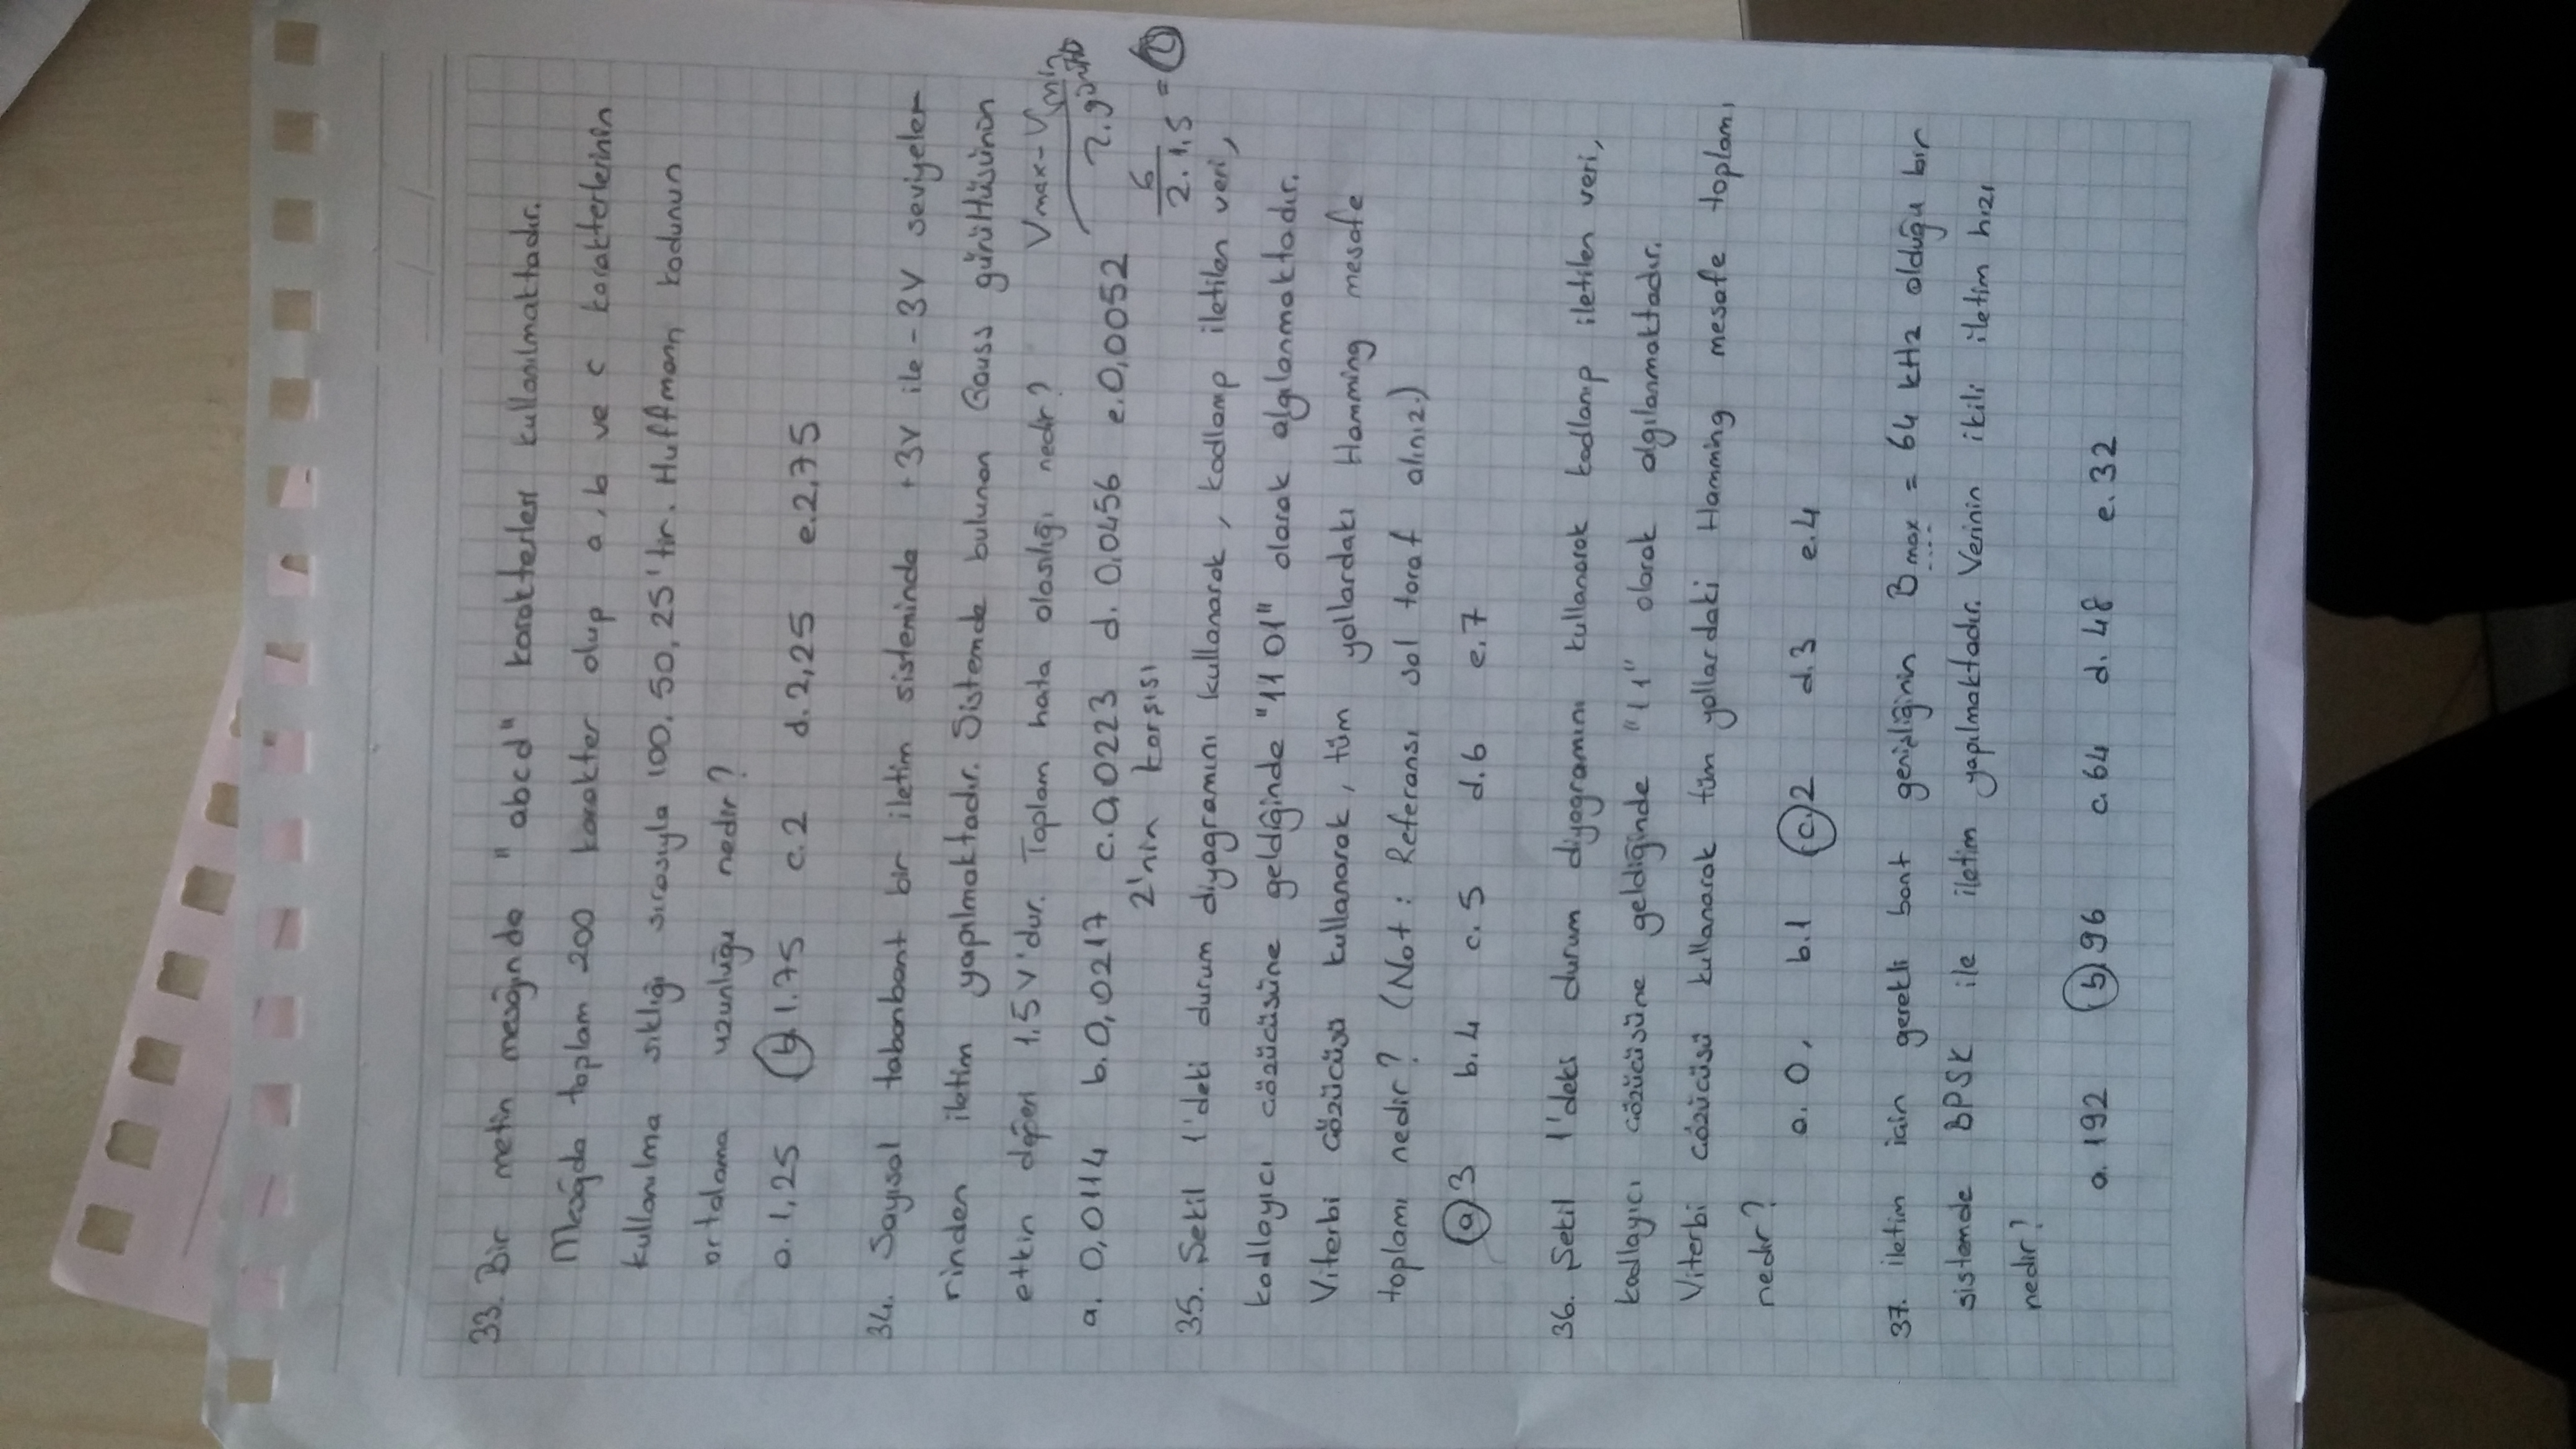 33. Bir metin mesajında "abcd" karakterleri kullanılmaktadır.
Mesajda toplam 200 karakter olup a, b ve c karakterlerinin
kullanılma sıklığı sırasıyla 100, 50, 25'tir. Huffmann kodunun
ortalama uzunluğu nedir?
a. 1,25 b. 1.75 c. 2 d. 2,25 e. 2,75
34. Sayısal tabanbant bir iletim sisteminde +3V ile -3V seviyele-
rinden iletim yapılmaktadır. Sistemde bulunan Gauss gürültüsünün
etkin değeri 1.5V'dur. Toplam hata olasılığı nedir?
Vmax - Vmin
a. 0,0114 b. 0,0217 c. 0,0223 d. 0,0456 e. 0,0052
2. gürültü
2'nin karşısı
6
2. 1,5 =
35. Şekil 1'deki durum diyagramını kullanarak, kodlanıp iletilen veri,
kodlayıcı çözücüsüne geldiğinde "11 01" olarak algılanmaktadır.
Viterbi çözücüsü kullanarak, tüm yollardaki Hamming mesafe
toplamı nedir? (Not: Referansı sol taraf alınız.)
a) 3 b. 4 c. 5 d. 6 e. 7
36. Şekil 1'deki durum diyagramını kullanarak kodlanıp iletilen veri,
kodlayıcı çözücüsüne geldiğinde "11" olarak algılanmaktadır.
Viterbi çözücüsü kullanarak tüm yollardaki Hamming mesafe toplamı
nedir?
a. 0, b. 1 c. 2 d. 3 e. 4
37. İletim için gerekli bant genişliğinin Bmax = 64 kHz olduğu bir
sistemde BPSK ile iletim yapılmaktadır. Verinin ikili iletim hızı
nedir?
a. 192 b. 96 c. 64 d. 48 e. 32